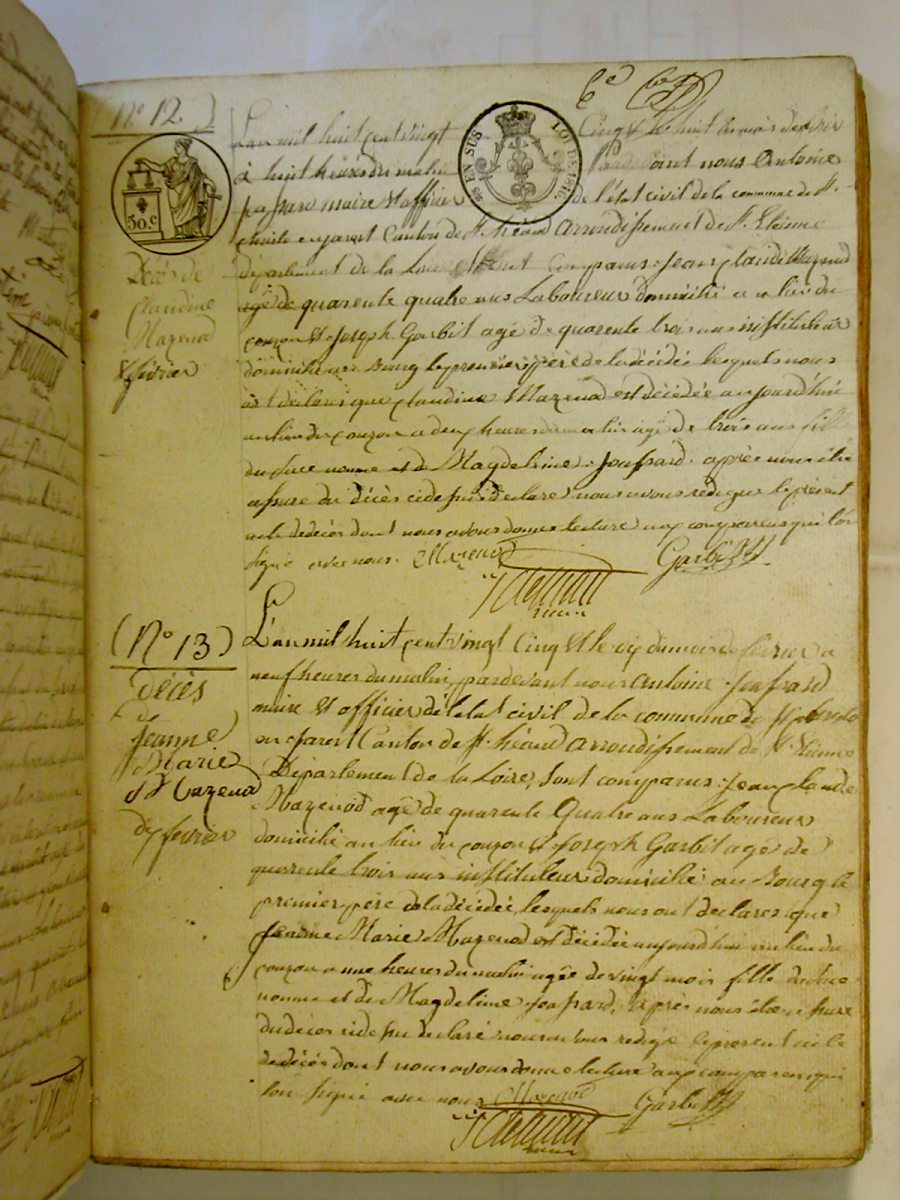 6e
(No 12.)
L'an mil huit cent vingt cinq & le huit du mois de
à huit heures du matin Pardevant nous Antoine
maire & officier de l'état civil de la commune de St
en jarest Canton de St héand arrondissement de St Etienne
département de la Loire sont comparus Jean Claude Mazenod
agé de quarente quatre ans Laboureur domicilié au lieu du
couzon & Joseph Garbit agé de quarente trois ans instituteur
domicilié au Bourg le premier père de la décédée lesquels nous
ont declarés que Claudine Mazenod est décédée aujourd'hui
au lieu du couzon a deux heures du matin agé de trois ans fille
du susnommé et de Magdeleine Joussard après nous être
assuré du décès cidessus declaré nous avons rédigé le présent
acte de décès dont nous avons donné lecture aux comparens qui l'on
signé avec nous. Mazenod Garbit
maire
EN SUS
LOI DE 1816
50.c
Décès de
Claudine
Mazenod
8 février
(No 13)
Décès
de
Jeanne
Marie
Mazenod
dix février
L'an mil huit cent vingt Cinq & le dix du mois de fevrier a
neuf heures du matin, pardevant nous antoine Joussard
maire & officier de l'état civil de la commune de St christo
en jarest Canton de St héand arrondissement de St Etienne
Département de la Loire, sont comparus Jean Claude
Mazenod agé de quarente Quatre ans Laboureur
domicilié au lieu du couzon & Joseph Garbit agé de
quarente trois ans instituteur domicilié au Bourg le
premier père de la décédée, lesquels nous ont declarés que
Jeanne Marie Mazenod est décédée aujourd'hui au lieu du
couzon a une heures du matin agée de vingt mois fille du sus
nommé et de Magdeleine Joussard, après nous être assuré
du décès cidessus declaré nous avons rédigé le present acte
de décès dont nous avons donné lecture aux comparens qui
l'on signé avec nous Mazenod Garbit
maire